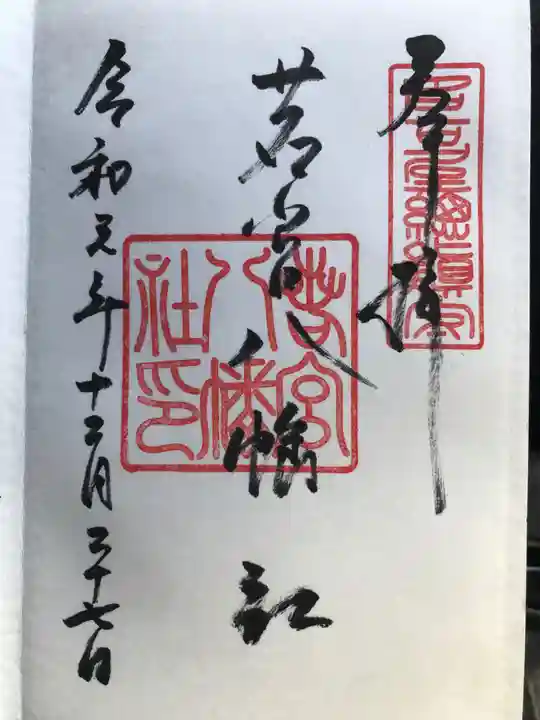 奉拝
若宮八幡社
令和元年十二月二十七日
若宮
八幡
社印